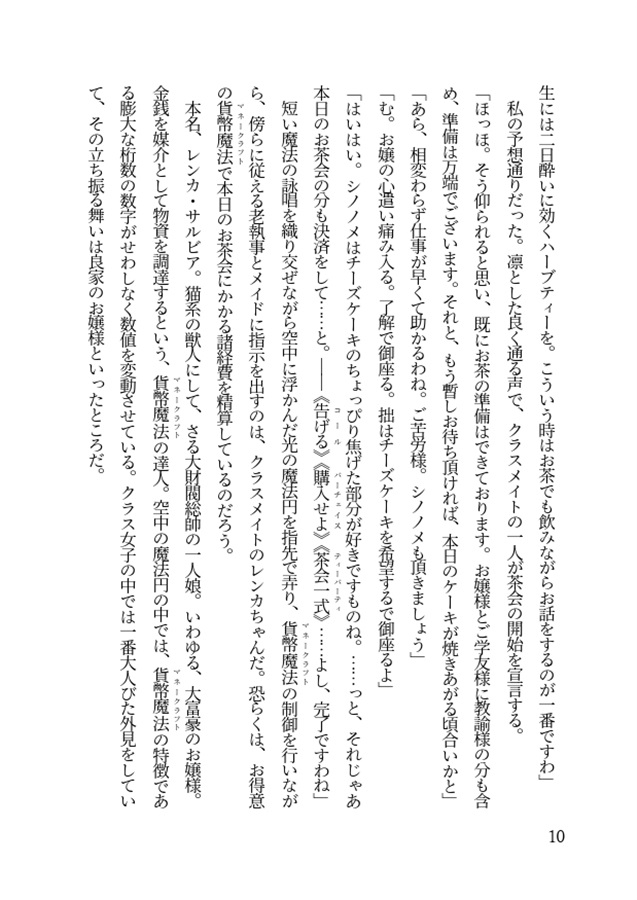 生には二日酔いに効くハーブティーを。こういう時はお茶でも飲みながらお話をするのが一番ですわ」
私の予想通りだった。凛とした良く通る声で、クラスメイトの一人が茶会の開始を宣言する。
「ほっほ。そう仰られると思い、既にお茶の準備はできております。お嬢様とご学友様に教諭様の分も含
め、準備は万端でございます。それと、もう暫しお待ち頂ければ、本日のケーキが焼きあがる頃合いかと」
「あら、相変わらず仕事が早くて助かるわね。ご苦労様。シノノメも頂きましょう」
「む。お嬢の心遣い痛み入る。了解で御座る。拙はチーズケーキを希望するで御座るよ」
「はいはい。シノノメはチーズケーキのちょっぴり焦げた部分が好きですものね。……っと、それじゃあ
本日のお茶会の分も決済をして……と。――《告げる》《購入せよ》《茶会一式》……よし、完了ですわね」
コール パーチェイス ティーパーティ
短い魔法の詠唱を織り交ぜながら空中に浮かんだ光の魔法円を指先で弄り、貨幣魔法の制御を行いなが
マネークラフト
ら、傍らに従える老執事とメイドに指示を出すのは、クラスメイトのレンカちゃんだ。恐らくは、お得意
の貨幣魔法で本日のお茶会にかかる諸経費を精算しているのだろう。
マネークラフト
本名、レンカ・サルビア。猫系の獣人にして、さる大財閥総帥の一人娘。いわゆる、大富豪のお嬢様。
金銭を媒介として物資を調達するという、貨幣魔法の達人。空中の魔法円の中では、貨幣魔法の特徴であ
マネークラフト マネークラフト
る膨大な桁数の数字がせわしなく数値を変動させている。クラス女子の中では一番大人びた外見をしてい
て、その立ち振る舞いは良家のお嬢様といったところだ。
10